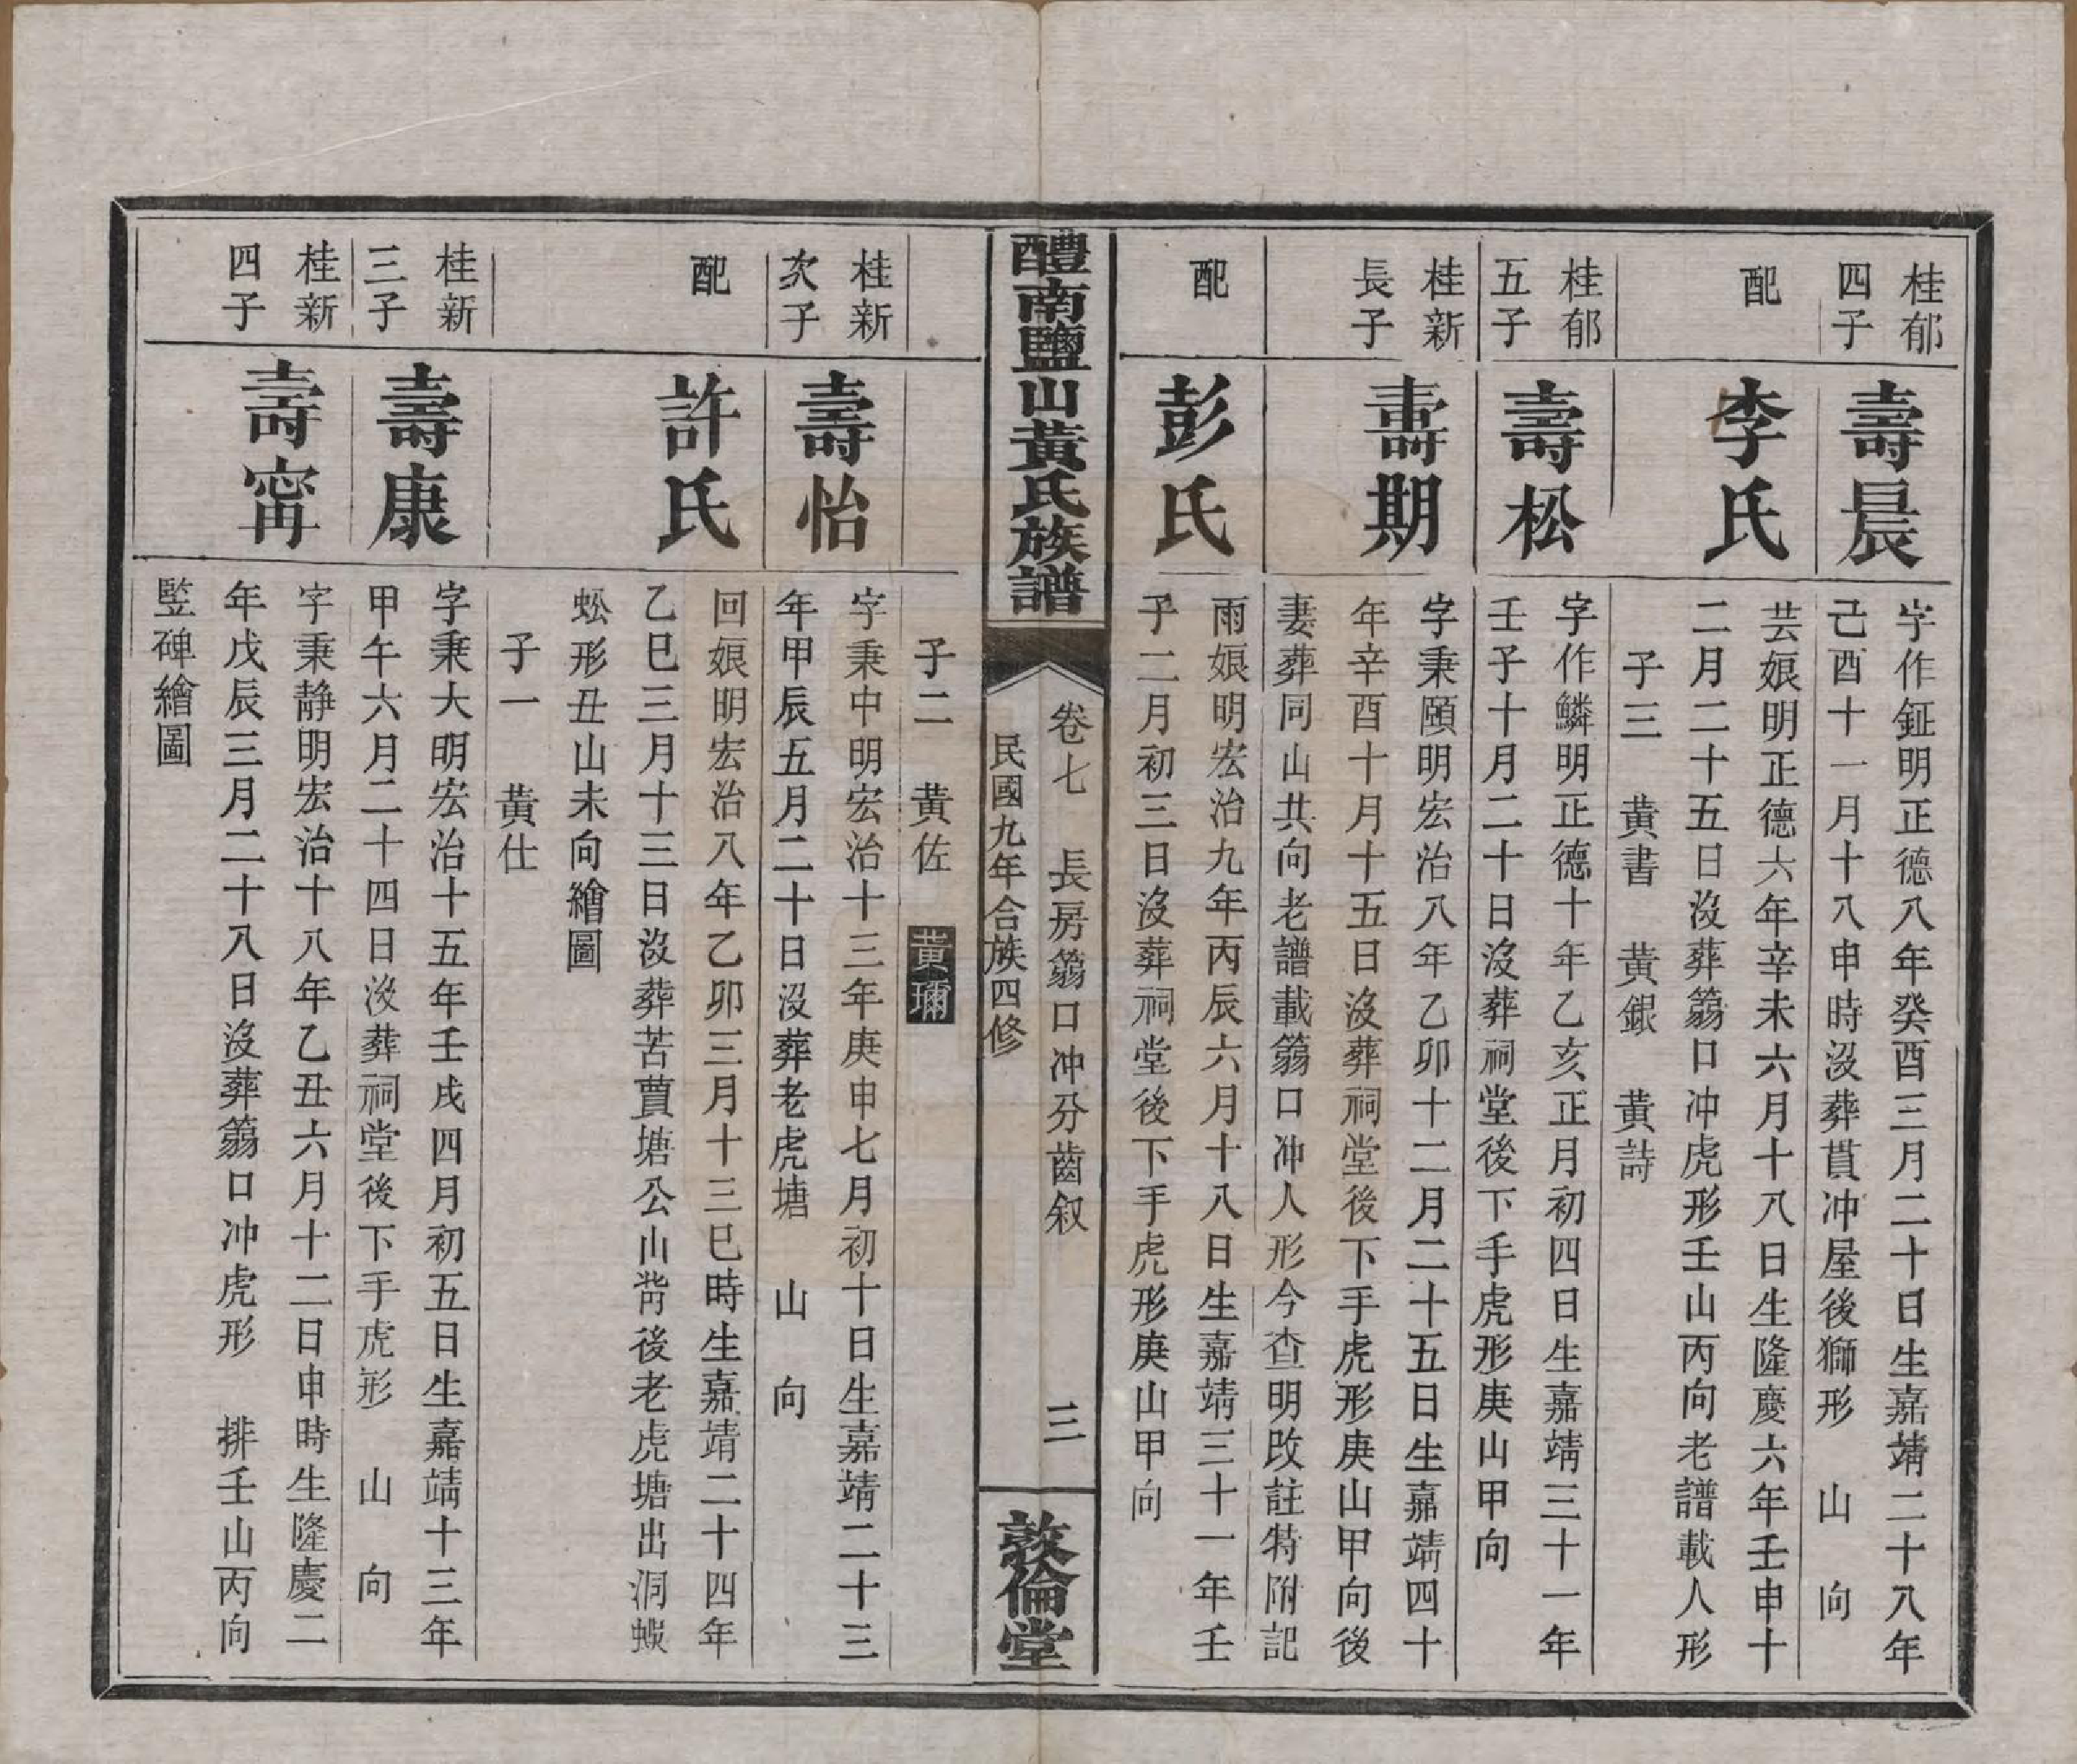 桂郁
四子
壽晨
字作鉦明正德八年癸酉三月二十日生嘉靖二十八年
己酉十一月十八申時沒葬貫冲屋後獅形 山 向
配
李氏
芸娘明正德六年辛未六月十八日生隆慶六年壬申十
二月二十五日沒葬篛口冲虎形壬山丙向老譜載人形
子三 黃書 黃銀 黃詩
桂郁
五子
壽松
字作鱗明正德十年乙亥正月初四日生嘉靖三十一年
壬子十月二十日沒葬祠堂後下手虎形庚山甲向
桂新
長子
壽期
字秉頤明宏治八年乙卯十二月二十五日生嘉靖四十
年辛酉十月十五日沒葬祠堂後下手虎形庚山甲向後
妻葬同山共向老譜載篛口冲人形今查明改註特附記
配
彭氏
雨娘明宏治九年丙辰六月十八日生嘉靖三十一年壬
子二月初三日沒葬祠堂後下手虎形庚山甲向
醴南鹽山黃氏族譜
卷七 長房篛口冲分齒叙 三
民國九年合族四修
敦倫堂
子二 黃佐 黃瓓
桂新
次子
壽怡
字秉中明宏治十三年庚申七月初十日生嘉靖二十三
年甲辰五月二十日沒葬老虎塘 山 向
配
許氏
回娘明宏治八年乙卯三月十三巳時生嘉靖二十四年
乙巳三月十三日沒葬苦蕒塘公山背後老虎塘出洞蜈
蚣形丑山未向繪圖
子一 黃仕
桂新
三子
壽康
字秉大明宏治十五年壬戌四月初五日生嘉靖十三年
甲午六月二十四日沒葬祠堂後下手虎形 山 向
桂新
四子
壽甯
字秉靜明宏治十八年乙丑六月十二日申時生隆慶二
年戊辰三月二十八日沒葬篛口冲虎形 排壬山丙向
竪碑繪圖